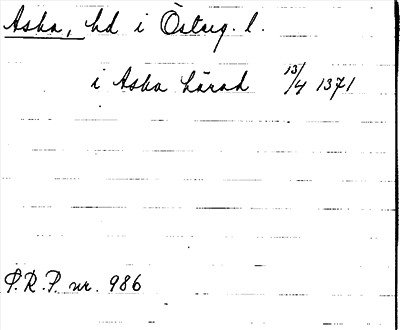 Aska, hd i Östog. l.
i Aska härad 13/4 1371
P.R.P. nr. 986